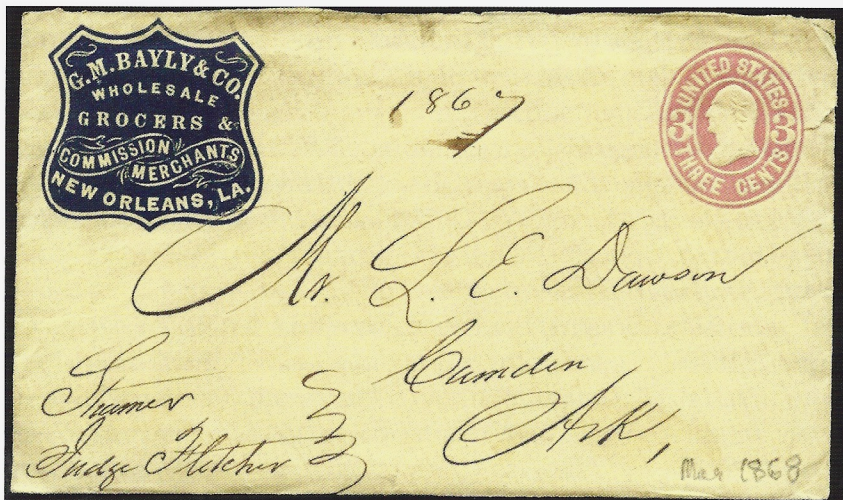 G.M. BAYLY & CO.
WHOLESALE
GROCERS &
COMMISSION
MERCHANTS
NEW ORLEANS, LA.
1867
UNITED STATES
3 3
THREE CENTS
Mr. L. E. Dawson
Camden
Ark,
Steamer
Judge Fletcher
Mar 1868